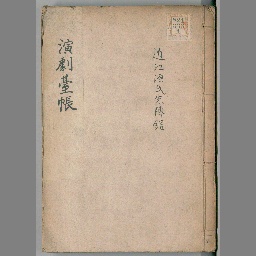 近江源氏先陣館
演劇臺帳